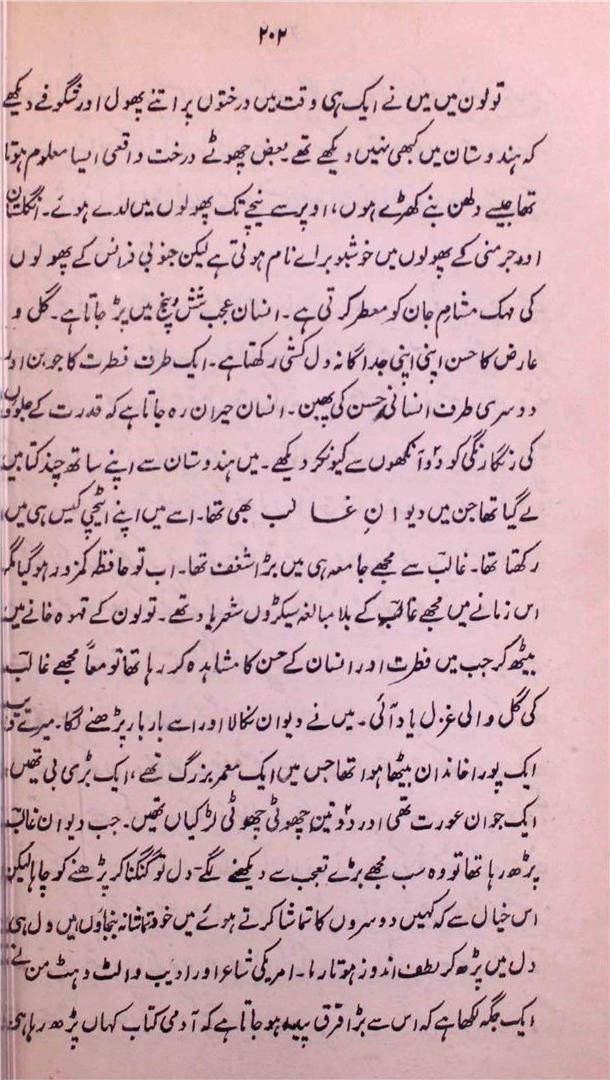 ۲۰۲
تولون میں میں نے ایک ہی وقت میں درختوں پر اتنے پھول اور شگوفے دیکھے
کہ ہندوستان میں کبھی نہیں دیکھے تھے۔ بعض چھوٹے درخت واقعی ایسا معلوم ہوتا
تھا جیسے دلھن بنے کھڑے ہوں، اوپر سے نیچے تک پھولوں میں لدے ہوئے۔ انگلستان
اور جرمنی کے پھولوں میں خوشبو براے نام ہوتی ہے لیکن جنوبی فرانس کے پھولوں
کی مہک مشامِ جان کو معطر کرتی ہے۔ انسان عجب شش و پنج میں پڑ جاتا ہے۔ گل و
عارض کا حسن اپنی اپنی جداگانہ دل کشی رکھتا ہے۔ ایک طرف فطرت کا جوبن اور
دوسری طرف انسانی حسن کی پھبن۔ انسان حیران رہ جاتا ہے کہ قدرت کے جلووں
کی رنگا رنگی کو دو آنکھوں سے کیونکر دیکھے۔ میں ہندوستان سے اپنے ساتھ چند کتابیں
لے گیا تھا جن میں دیوانِ غالب بھی تھا۔ اسے میں اپنے اٹیچی کیس ہی میں
رکھتا تھا۔ غالبؔ سے مجھے جامعہ ہی میں بڑا شغف تھا۔ اب تو حافظہ کمزور ہوگیا مگر
اس زمانے میں مجھے غالبؔ کے بلا مبالغہ سیکڑوں شعر یاد تھے۔ تولون کے قہوہ خانے میں
بیٹھ کر جب میں فطرت اور انسان کے حسن کا مشاہدہ کر رہا تھا تو معاً مجھے غالبؔ
کی گل والی غزل یاد آئی۔ میں نے دیوان نکالا اور اسے بار بار پڑھنے لگا۔ میرے قریب
ایک پورا خاندان بیٹھا ہوا تھا جس میں ایک معمر بزرگ تھے، ایک بڑی بی تھیں،
ایک جوان عورت تھی اور دو تین چھوٹی چھوٹی لڑکیاں تھیں۔ جب دیوان غالبؔ
پڑھ رہا تھا تو وہ سب مجھے بڑے تعجب سے دیکھنے لگے۔ دل تو گنگنا کر پڑھنے کو چاہا لیکن
اس خیال سے کہ کہیں دوسروں کا تماشا کرتے ہوئے میں خود تماشا نہ بنجاؤں میں دل ہی
دل میں پڑھ کر لطف اندوز ہوتا رہا۔ امریکی شاعر اور ادیب والٹ وہٹ من نے
ایک جگہ لکھا ہے کہ اس سے بڑا فرق پیدا ہو جاتا ہے کہ آدمی کتاب کہاں پڑھ رہا ہے